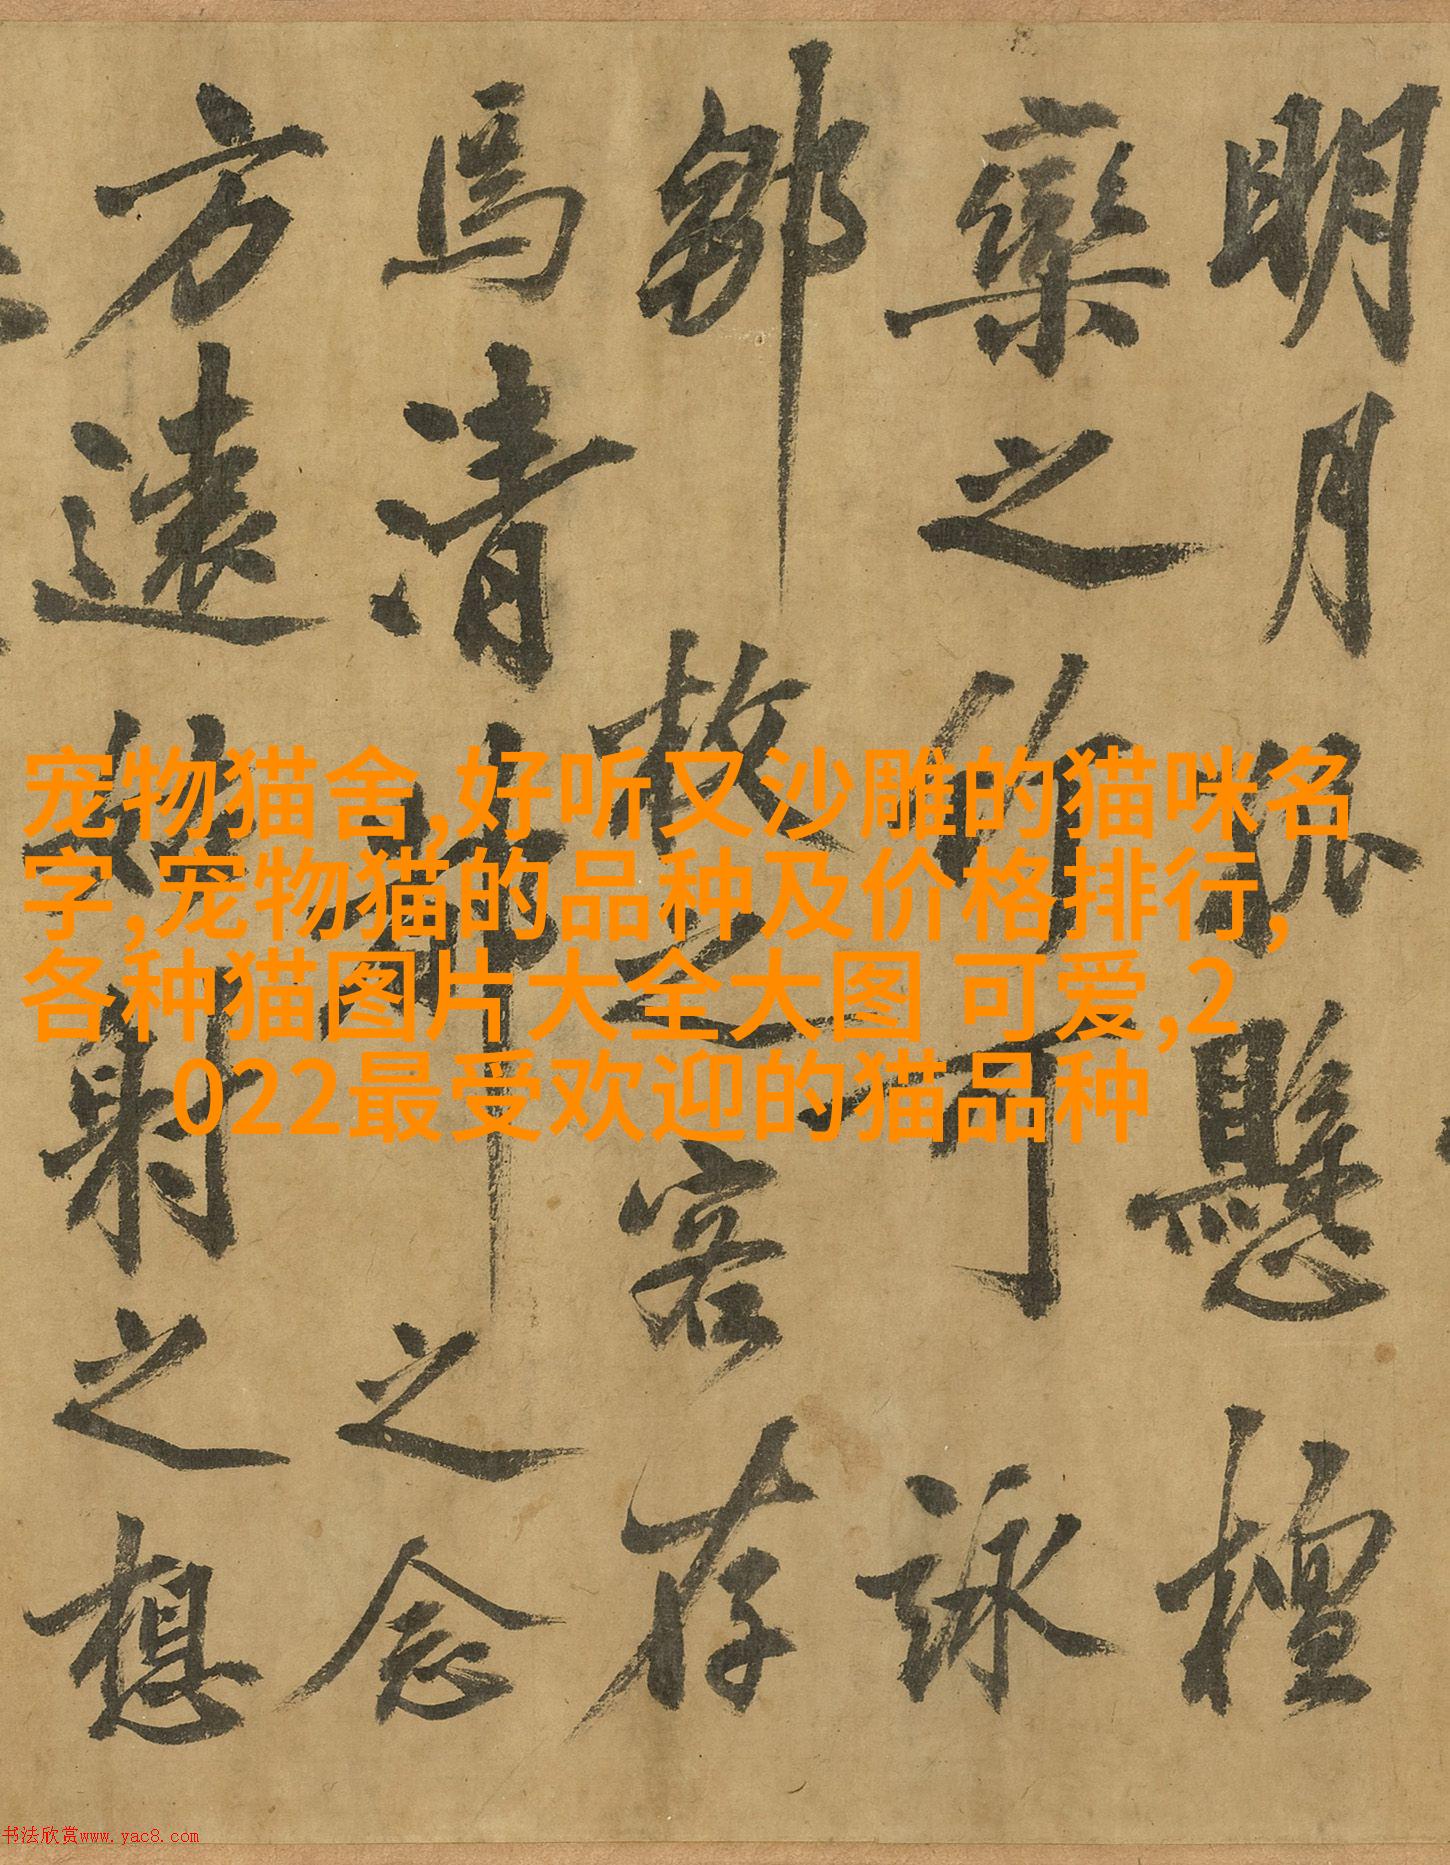 明月懸檀
欒之竹可詠
鄒故之客存
焉清之念
方遠姑射之想
宠物猫舍,好听又沙雕的猫咪名
字,宠物猫的品种及价格排行,
各种猫图片大全大图 可爱,2
022最受欢迎的猫品种
书法欣赏www.yac8.com